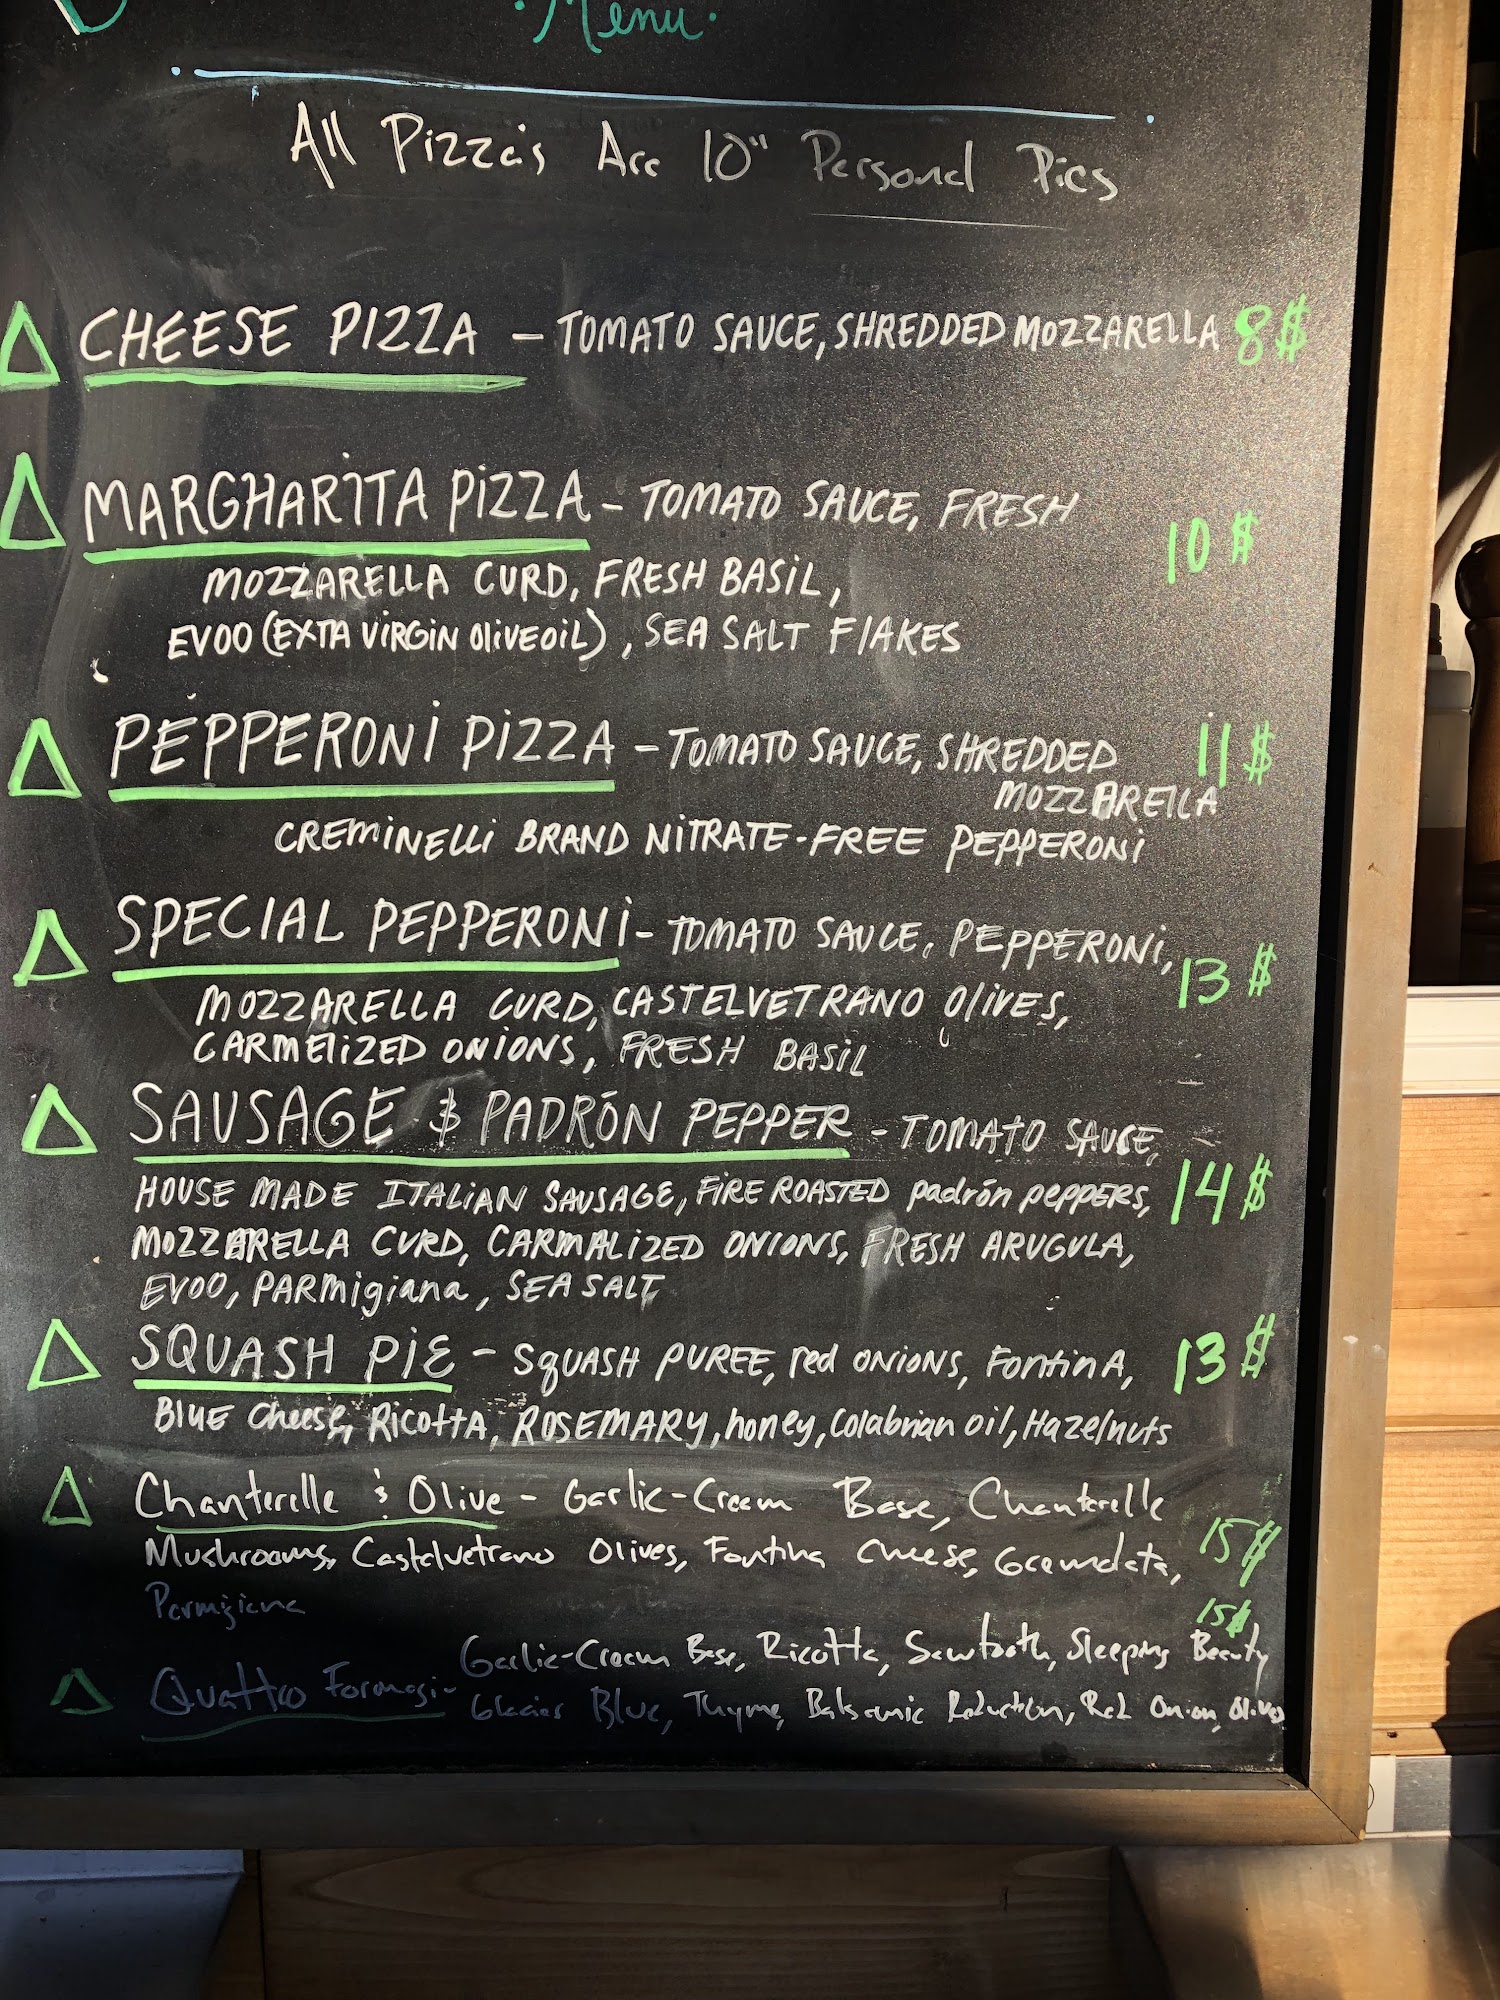 ·Menu·
All Pizza's Are 10" Personal Pies
CHEESE PIZZA – TOMATO SAUCE, SHREDDED MOZZARELLA 8$
MARGHARITA PIZZA – TOMATO SAUCE, FRESH
10$
MOZZARELLA CURD, FRESH BASIL,
EVOO (EXTA VIRGIN OLIVE OIL), SEA SALT FLAKES
PEPPERONI PIZZA – TOMATO SAUCE, SHREDDED 11$
MOZZARELLA
CREMINELLI BRAND NITRATE-FREE PEPPERONI
SPECIAL PEPPERONI – TOMATO SAUCE, PEPPERONI,
13$
MOZZARELLA CURD, CASTELVETRANO OLIVES,
CARMELIZED ONIONS, FRESH BASIL
SAUSAGE & PADRÓN PEPPER – TOMATO SAUCE,
HOUSE MADE ITALIAN SAUSAGE, FIRE ROASTED padrón pePPERS, 14$
MOZZARELLA CURD, CARMALIZED ONIONS, FRESH ARUGULA,
EVOO, PARMigiana, SEA SALT
SQUASH PIE – SqUASH PUREE, red ONIONS, FontinA, 13$
BLUE cheese, RicottA, ROSEMARY, honey, Colabrian oil, Hazelnuts
Chanterelle & Olive – Garlic-Cream Base, Chanterelle
Mushrooms, Castelvetrano Olives, Fontina Cheese, Gremolata, 15$
Parmigiana
15$
Garlic-Cream Base, Ricotta, Sawtooth, Sleeping Beauty
Quattro Formagi –
Glacier Blue, Thyme, Balsamic Reduction, Red Onion, Olives